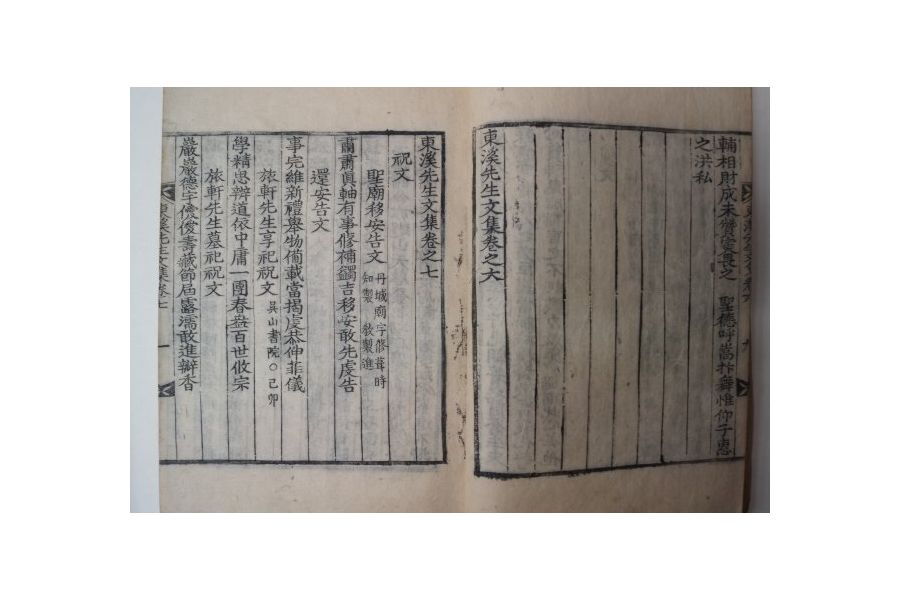 輔相財成未贊憂畏之 聖德呼嵩抃舞惟仰子惠
之洪私
東溪先生文集卷之六
東溪先生文集卷之七
祝文
聖廟移安告文 丹城廟宇修葺時
知製 敎製進
肅肅眞軸有事修補蠲吉移安敢先虔告
還安告文
事完維新禮擧物備載當揭虔恭伸菲儀
旅軒先生享祀祝文 吳山書院○己卯
學精思辨道依中庸一團春盎百世攸宗
旅軒先生墓祀祝文
嚴嚴德宇僾僾壽藏節屆露濡敢進瓣香
東溪先生文集卷七 一